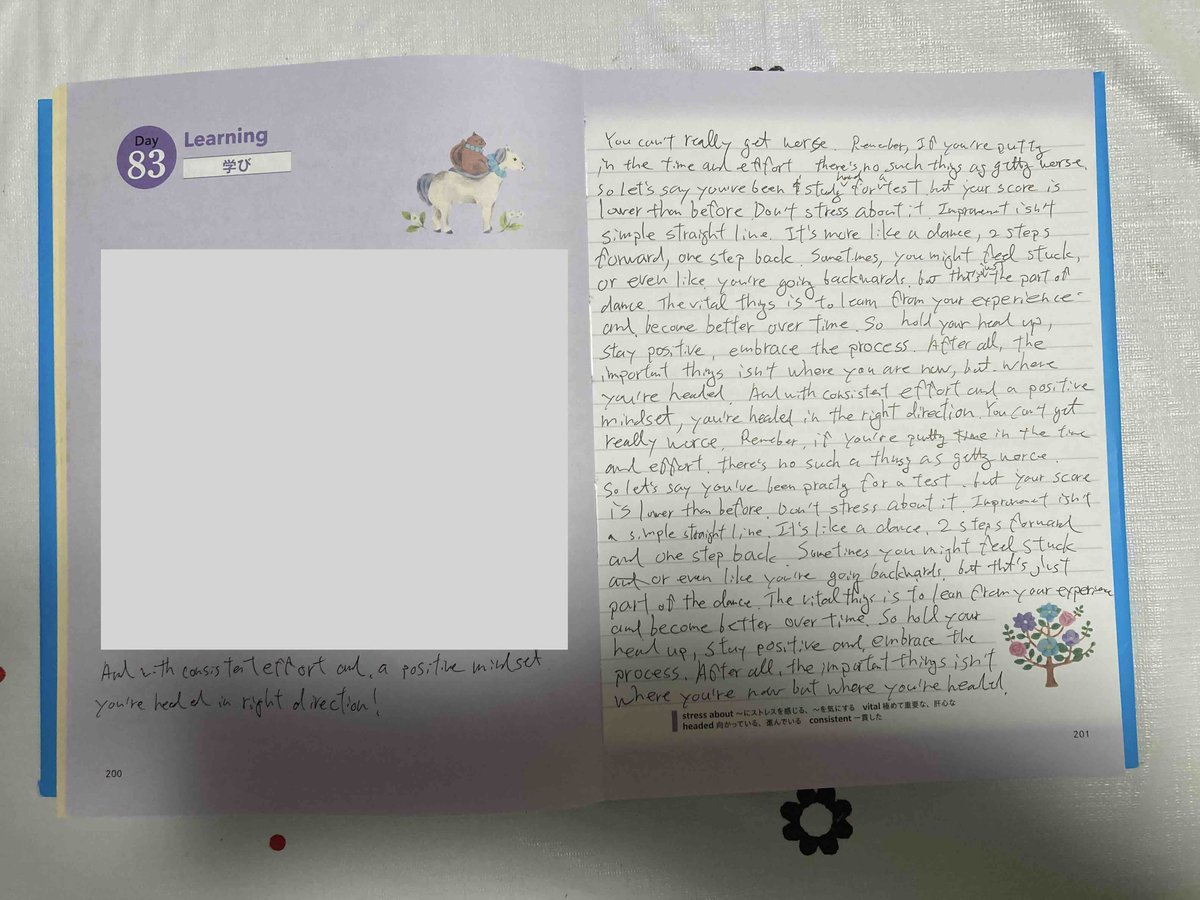 Day
83
Learning
学び
And with consistent effort and a positive mindset
you're headed in right direction!
200
You can't really get worse. Remember, If you're putty
in the time and effort there's no such things as getty worse.
So let's say you've been study hard for a test but your score is
lower than before Don't stress about it. Improvement isn't
simple straight line. It's more like a dance, 2 steps
forward, one step back. Sometimes, you might feel stuck,
or even like you're going backwards. but that's just the part of
dance. The vital things is to learn from your experience
and become better over time. So hold your head up,
stay positive, embrace the process. After all, the
important things isn't where you are now, but where
you're headed. And with consistent effort and a positive
mindset, you're headed in the right direction. You can't get
really worse. Remeber, if you're putty time in the time
and effort. there's no such a thing as getty worse.
So let's say you've been practy for a test. but your score
is lower than before. Don't stress about it. Improvement isn't
a simple straight line. It's like a dance. 2 steps forward
and one step back. Sometimes you might feel stuck
and or even like you're going backwards. but that's just
part of the dance. The vital things is to lean from your experience
and become better over time. So hold your
head up, stay positive and embrace the
process. After all, the important things isn't
where you're now but where you're headed.
stress about ～にストレスを感じる、～を気にする vital 極めて重要な、肝心な
headed 向かっている、進んでいる consistent 一貫した
201